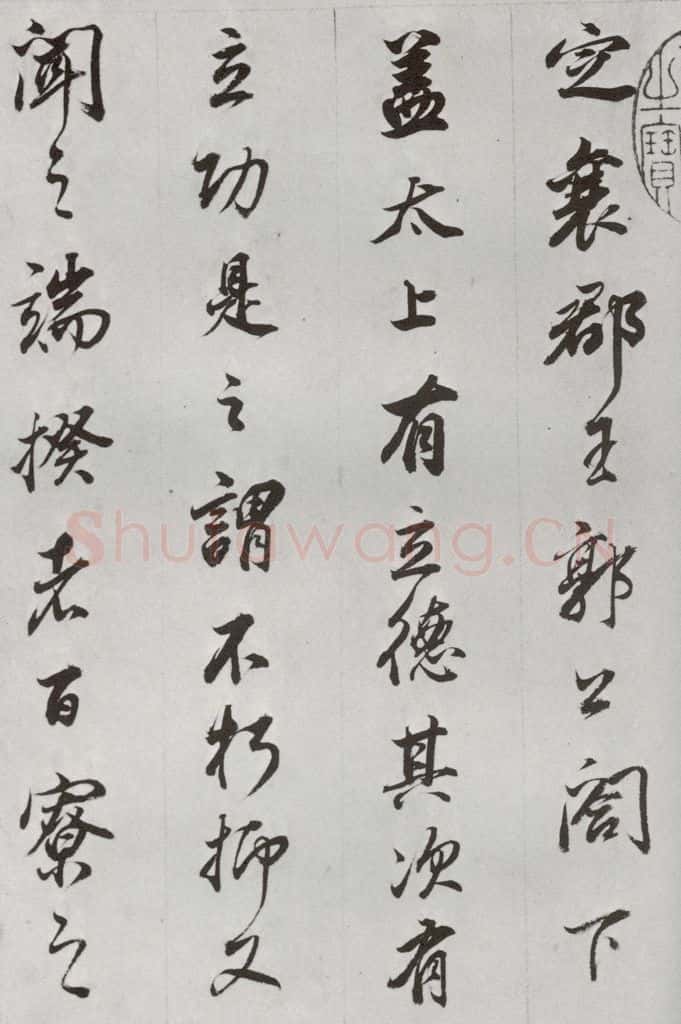 定襄郡王郭公閤下
蓋太上有立德其次有
立功是之謂不朽抑又
聞之端揆者百寮之
之寶
Shufawang.CN